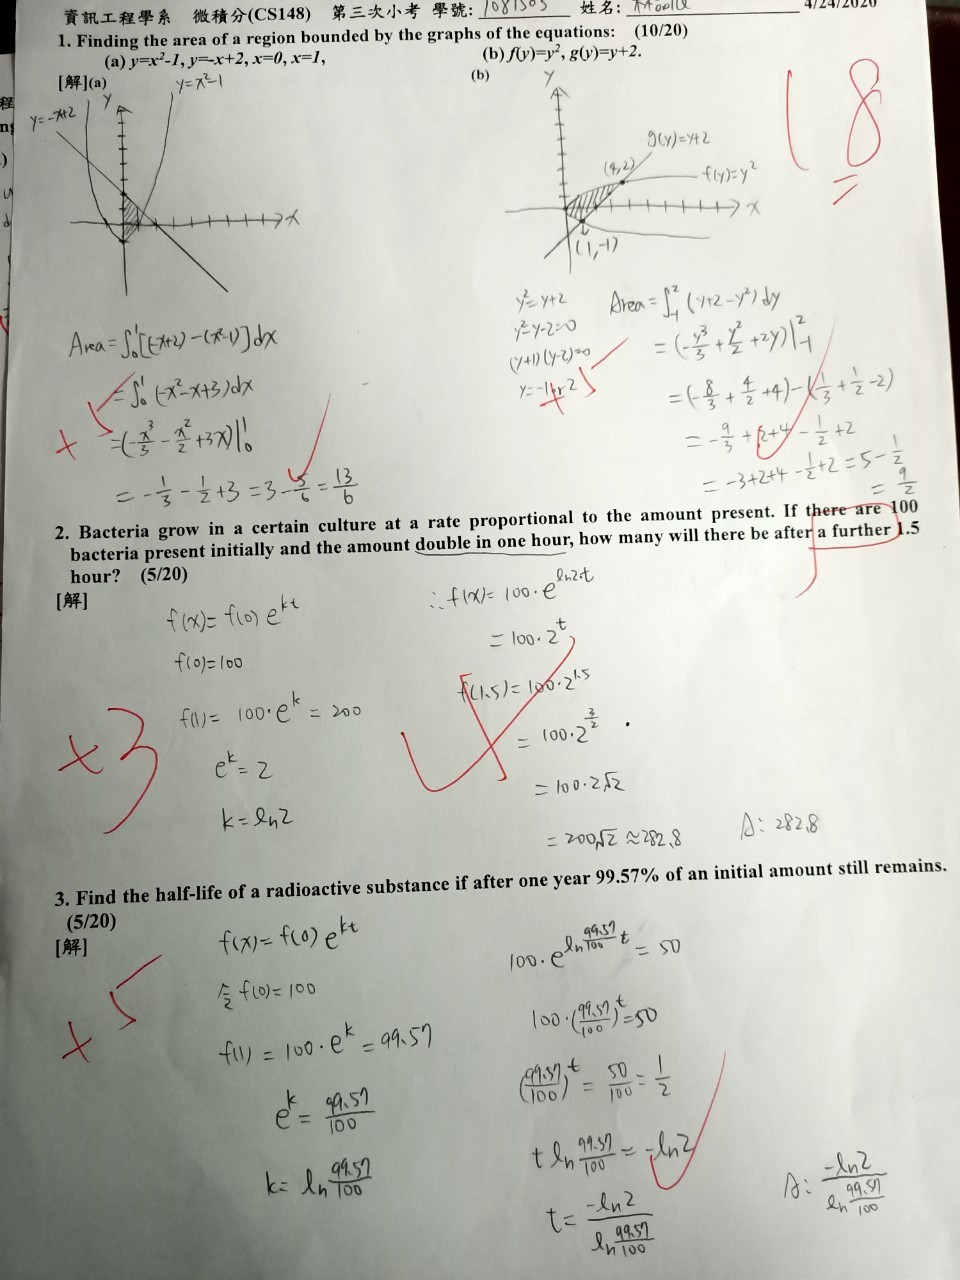 資訊工程學系 微積分(CS148) 第三次小考 學號: 1081505 姓名: 4/24/2020
1. Finding the area of a region bounded by the graphs of the equations: (10/20)
(a) y=x²-1, y=-x+2, x=0, x=1, (b) f(y)=y², g(y)=y+2.
[解](a)
(b)
y=x²-1
y=-x+2
y
x
y
g(y)=y+2
(4,2)
f(y)=y²
x
(1,-1)
18
Area=∫₀¹[(-x+2)-(x²-1)]dx
=∫₀¹(-x²-x+3)dx
=(-x³/3-x²/2+3x)|₀¹
=-1/3-1/2+3=3-5/6=13/6
+5
y²=y+2
y²-y-2=0
(y+1)(y-2)=0
y=-1 or 2
+5
Area=∫₋₁²(y+2-y²)dy
=(-y³/3+y²/2+2y)|₋₁²
=(-8/3+4/2+4)-(1/3+1/2-2)
=-9/3+2+4-1/2+2
=-3+2+4-1/2+2=5-1/2
=9/2
2. Bacteria grow in a certain culture at a rate proportional to the amount present. If there are 100
bacteria present initially and the amount double in one hour, how many will there be after a further 1.5
hour? (5/20)
[解]
f(x)=f(0)e^kt
f(0)=100
f(1)=100·e^k=200
e^k=2
k=ln2
+3
∴f(x)=100·e^ln2·t
=100·2^t
f(1.5)=100·2^1.5
=100·2^3/2
=100·2√2
=200√2≈282.8
A: 282.8
3. Find the half-life of a radioactive substance if after one year 99.57% of an initial amount still remains.
(5/20)
[解]
f(x)=f(0)e^kt
令f(0)=100
f(1)=100·e^k=99.57
e^k=99.57/100
k=ln 99.57/100
+5
100·e^ln 99.57/100 t=50
100·(99.57/100)^t=50
(99.57/100)^t=50/100=1/2
t ln 99.57/100=-ln2
t=-ln2/ln 99.57/100
A: -ln2/ln 99.57/100